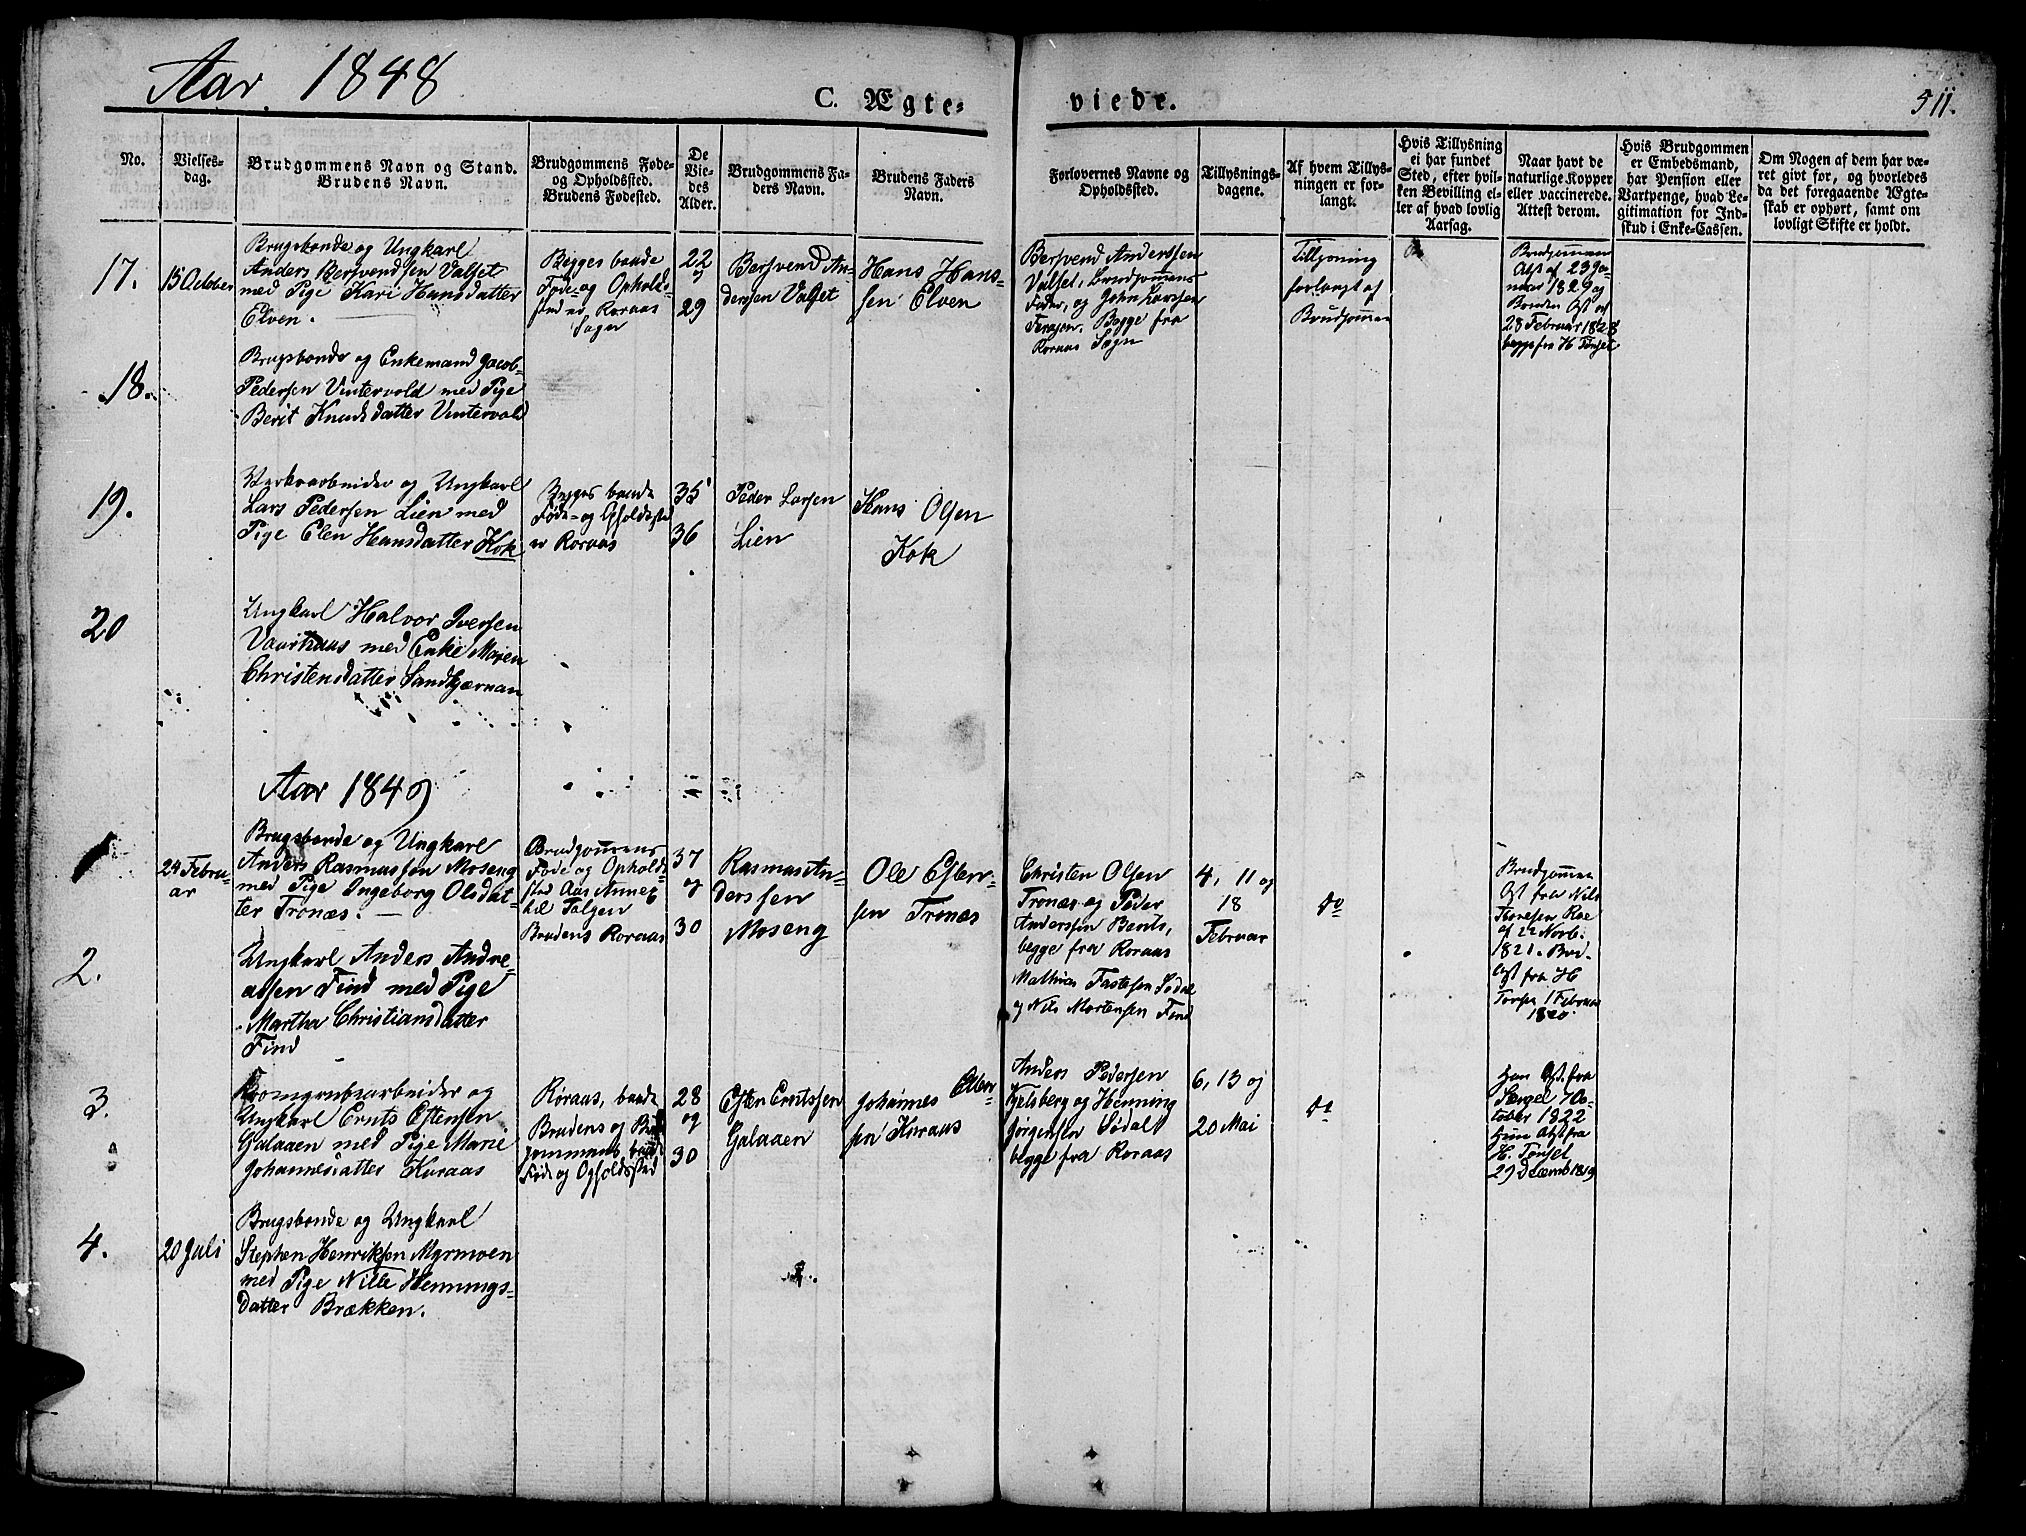 Aar 1848
C. Ægte-
viede.
511.
No.
Vielses-
dag.
Brudgommens Navn og Stand.
Brudens Navn.
Brudgommens Føde-
og Opholdssted.
Brudens Fødested.
De
Vie-
des
Alder.
Brudgommens Fa-
ders Navn.
Brudens Faders
Navn.
Forlovernes Navne og
Opholdssted.
Tillysnings-
dagene.
Af hvem Tillys-
ningen er for-
langt.
Hvis Tillysning
ei har fundet
Sted, efter hvil-
ken Bevilling el-
ler af hvad lovlig
Aarsag.
Naar havt de
naturlige Kopper
eller vaccinerede.
Attest derom.
Hvis Brudgommen
er Embedsmand,
har Pension eller
Vartpenge, hvad Le-
gitimation for Ind-
skud i Enke-Cassen.
Om Nogen af dem har væ-
ret givt for, og hvorledes
da det foregaaende Ægte-
skab er ophørt, samt om
lovligt Skifte er holdt.
17.
15 October
Brugsbonde og Ungkarl
Anders Bersvendsen Valset
med Pige Kari Hansdatter
Elven.
Begges baade
Føde- og Opholds-
sted er Roraas
Sogn
22
og
29
Bersvend An-
derssen Valset
Hans Hans-
sen Elven
Bersvend Anderssen
Valset, Brudgommens
Fader, og John Larssen
Begge fra
Roraas Sogn
Tillysning
forlangt af
Brudgommen
Brudgommen
Atst af 23 Ja-
nuar 1829 og
Bruden Atst af
28 Februar 1828
begge fra H Tønset
18.
Brugsbonde og Enkemand Jacob
Pedersen Vintervold med Pige
Berit Knudsdatter Vintervold
19.
Verksarbeider og Ungkarl
Lars Pedersen Lien med
Pige Elen Hansdatter Kok
Begges baade
Føde- og Opholdssted
er Roraas
35
36
Peder Larsen
Lien
Hans Olsen
Kok
20
Ungkarl Halvor Iversen
med Enke Maren
Christensdatter Sandkjærnan
Aar 1849
1
24 Febru-
ar
Brugsbonde og Ungkarl
Anders Rasmussen Moseng
med Pige Ingeborg Olsdat-
ter Tronæs.
Brudgommens
Føde og Opholds
sted Aas Annex
til Tolgen
Brudens Roraas
37
og
30
Rasmus An-
derssen
Moseng
Ole Esten-
sen Tronæs
Christen Olsen
Tronæs og Peder
Anderssen Bents,
begge fra Roraas
4, 11 og
18
Februar
do
Brudgommen
Atst fra Nils
Thoresen Roe
af 22 Novb.
1821. Brd.
Atst fra H
1 Februar
1820.
2.
Ungkarl Anders Andre-
assen Find med Pige
Martha Christiansdatter
Find
Mathias Fastesen Sødal
og Nils Mortensen Find
3.
Roomgrubearbeider og
Ungkarl Ernts Estensen
Galaaen med Pige Marie
Johannesdatter Kuraas
Røraas, baade
Brudens og Brud
gommens baade
Føde og Opholdssted
28
og
30
Esten Erntssen
Galaaen
Johannes Olsen
sen Kuraas
Anders Pedersen
Fjelsberg og Henning
Jørgensen Sødal
begge fra Roraas
6, 13 og
20 Mai
do
Han Atst. fra
7 Oc-
tober 1822
Hun Atst fra
H. Tønset
29 Decemb 1819
4.
20 Juli
Brugsbonde og Ungkarl
Stephen Henriksen Myrmoen
med Pige Nille Hennings-
datter Brækken.